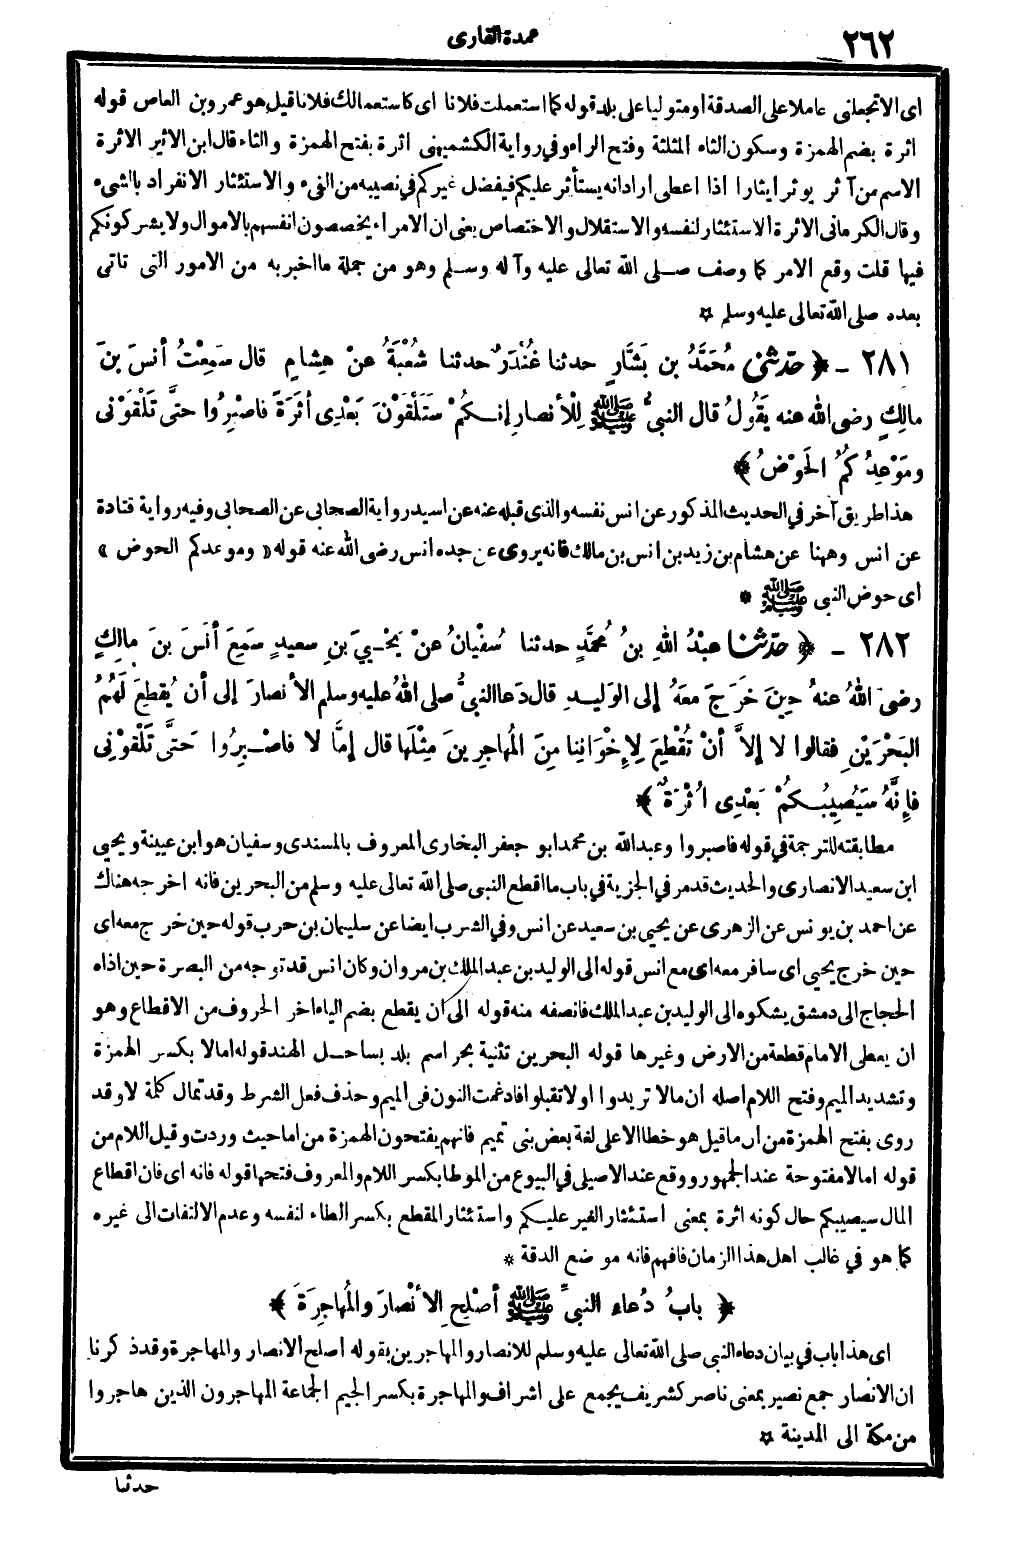 ٢٦٢
عمدة القارى
اى الا تجعلنى عاملا على الصدقة او متوليا على بلد قوله كما استعملت فلانا اى كاستعمالك فلانا قيل هو عمرو بن العاص قوله
اثرة بضم الهمزة وسكون الثاء المثلثة وفتح الراء وفي رواية الكشميهنى اثرة بفتح الهمزة والثاء قال ابن الاثير الاثرة
الاسم من آثر يوثر ايثارا اذا اعطى ارادانه يستأثر عليكم فيفضل غيركم في نصيبه من الفىء والاستئثار الانفراد بالشىء
وقال الكرمانى الاثرة الاستئثار لنفسه والاستقلال والاختصاص يعنى ان الامراء يخصصون انفسهم بالاموال ولا يشركونكم
فيها قلت وقع الامر كما وصف صلى الله تعالى عليه وآله وسلم وهو من جملة ما اخبر به من الامور التى تاتى
بعده صلى الله تعالى عليه وسلم ✡
٢٨١ - ﴿ حدّثنى مُحَمَّدُ بن بَشَّارٍ حدثنا غُنْدَرٌ حدثنا شُعْبَةُ عنْ هِشامٍ قال سَمِعْتُ أنسَ بنَ
مالِكٍ رضى الله عنه يَقُولُ قال النبيُّ ﷺ لِلْأنصارِ إنـكُمْ سَتَلْقَوْنَ بَعْدِى أثَرَةً فاصْبِرُوا حتَّى تَلْقَوْنى
ومَوْعِدُكُمُ الحَوْضُ ﴾
هذا طريق آخر في الحديث المذكور عن انس نفسه والذى قبله عنه عن اسيد رواية الصحابى عن الصحابى وفيه رواية قتادة
عن انس وههنا عن هشام بن زيد بن انس بن مالك فانه يروى عن جده انس رضى الله عنه قوله «وموعدكم الحوض»
اى حوض النبى ﷺ *
٢٨٢ - ﴿ حدّثنا عبْدُ اللهِ بنُ مُحمَّدٍ حدثنا سُفْيانُ عنْ يَحْـيىَ بنِ سعيدٍ سَمِعَ أنَسَ بنَ مالِكٍ
رضىَ اللهُ عنهُ حِينَ خَرَجَ معَهُ إلى الوَلِيدِ قال دَعا النبيُّ صلى اللهُ عليه وسلم الأنصارَ إلى أن يُقْطِعَ لَهُمُ
البَحْرَيْنِ فقالوا لا إلاَّ أنْ تُقْطِعَ لإِخْوَانِنا مِنَ المُهاجِرِينَ مِثْلَها قال إمَّا لا فاصْـبِرُوا حَتَّى تَلْقَوْنِى
فإِنَّهُ سَيُصِيبُـكمْ بَعْدِى أُثْرَةٌ ﴾
مطابقته للترجمة في قوله فاصبروا وعبد الله بن محمد ابو جعفر البخارى المعروف بالمسندى وسفيان هو ابن عيينة ويحيى
ابن سعيد الانصارى والحديث قدمر في الجزية في باب ما اقطع النبى صلى الله تعالى عليه وسلم من البحرين فانه اخرجه هناك
عن احمد بن يونس عن الزهرى عن يحيى بن سعيد عن انس وفى الشرب ايضا عن سليمان بن حرب قوله حين خرج معه اى
حين خرج يحيى اى سافر معه اى مع انس قوله الى الوليد بن عبد الملك بن مروان وكان انس قد توجه من البصرة حين اذاه
الحجاج الى دمشق يشكوه الى الوليد بن عبد الملك فانصفه منه قوله الى ان يقطع بضم الياء اخر الحروف من الاقطاع وهو
ان يعطى الامام قطعة من الارض وغيرها قوله البحرين تثنية بحر اسم بلد بساحـل الهند قوله امالا بكسر الهمزة
وتشديد الميم وفتح اللام اصله ان مالا تريدوا او لا تقبلوا فادغمت النون فى الميم وحذف فعل الشرط وقد تمال كلمة لا وقد
روى بفتح الهمزة من اما قيل هو خطا الا على لغة بعض بنى تميم فانهم يفتحون الهمزة من اما حيث وردت وقيل اللام من
قوله امالا مفتوحة عند الجمهور ووقع عند الاصيلى في البيوع من الموطا بكسر اللام والمعروف فتحها قوله فانه اى فان اقطاع
المال سيصيبكم حال كونه اثرة بمعنى استئثار الغير عليـكم واستئثار المقطع بكسر الطاء لنفسه وعدم الالتفات الى غيره
كما هو في غالب اهل هذا الزمان فافهم فانه موضع الدقة *
﴿ بابُ دُعاءِ النبيِّ ﷺ أصْلِحِ الأنْصارَ والمُهاجِرَةَ ﴾
اى هذا باب في بيان دعاء النبى صلى الله تعالى عليه وسلم للانصار والمهاجرين بقوله اصلح الانصار والمهاجرة وقد ذكرنا
ان الانصار جمع نصير بمعنى ناصر كشريف يجمع على اشراف والمهاجرة بكسر الجيم الجماعة المهاجرون الذين هاجروا
من مكة الى المدينة ✡
حدثنا